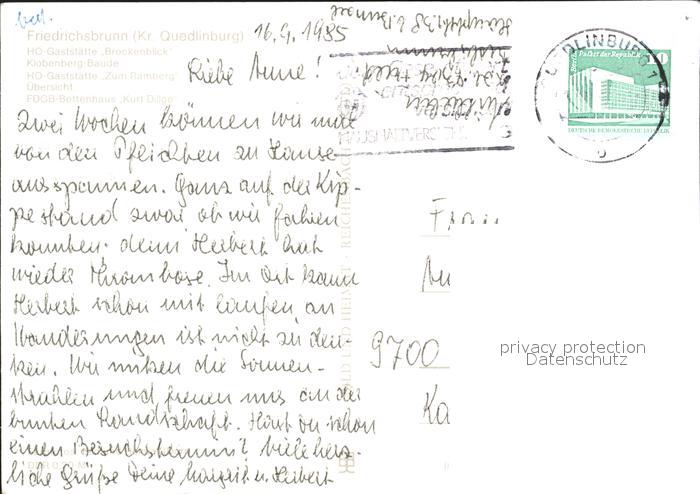 Friedrichsbrunn (Kr. Quedlinburg)
HO-Gaststätte „Brockenblick“
Klobenberg-Baude
HO-Gaststätte „Zum Ramberg“
Übersicht
FDGB-Bettenhaus „Kurt Dillge“
16.9.1985
Liebe Anne!
zwei Wochen können wir mal
von den Pflichten zu Hause
ausspannen. Ganz auf der Kip-
pe stand zwar ob wir fahren
konnten, denn Herbert hat
wieder Thrombose. Im Ort kann
Herbert schon mit laufen, an
Wanderungen ist nicht zu den-
ken. Wir nutzen die Sonnen-
strahlen und freuen uns an der
bunten Landschaft. Hast du schon
einen Besuchstermin? Viele herz-
liche Grüße Deine Margit u. Herbert
QUEDLINBURG 1
Palast der Republik
DEUTSCHE DEMOKRATISCHE REPUBLIK
BILD UND HEIMAT
Frau
9700
privacy protection
Datenschutz